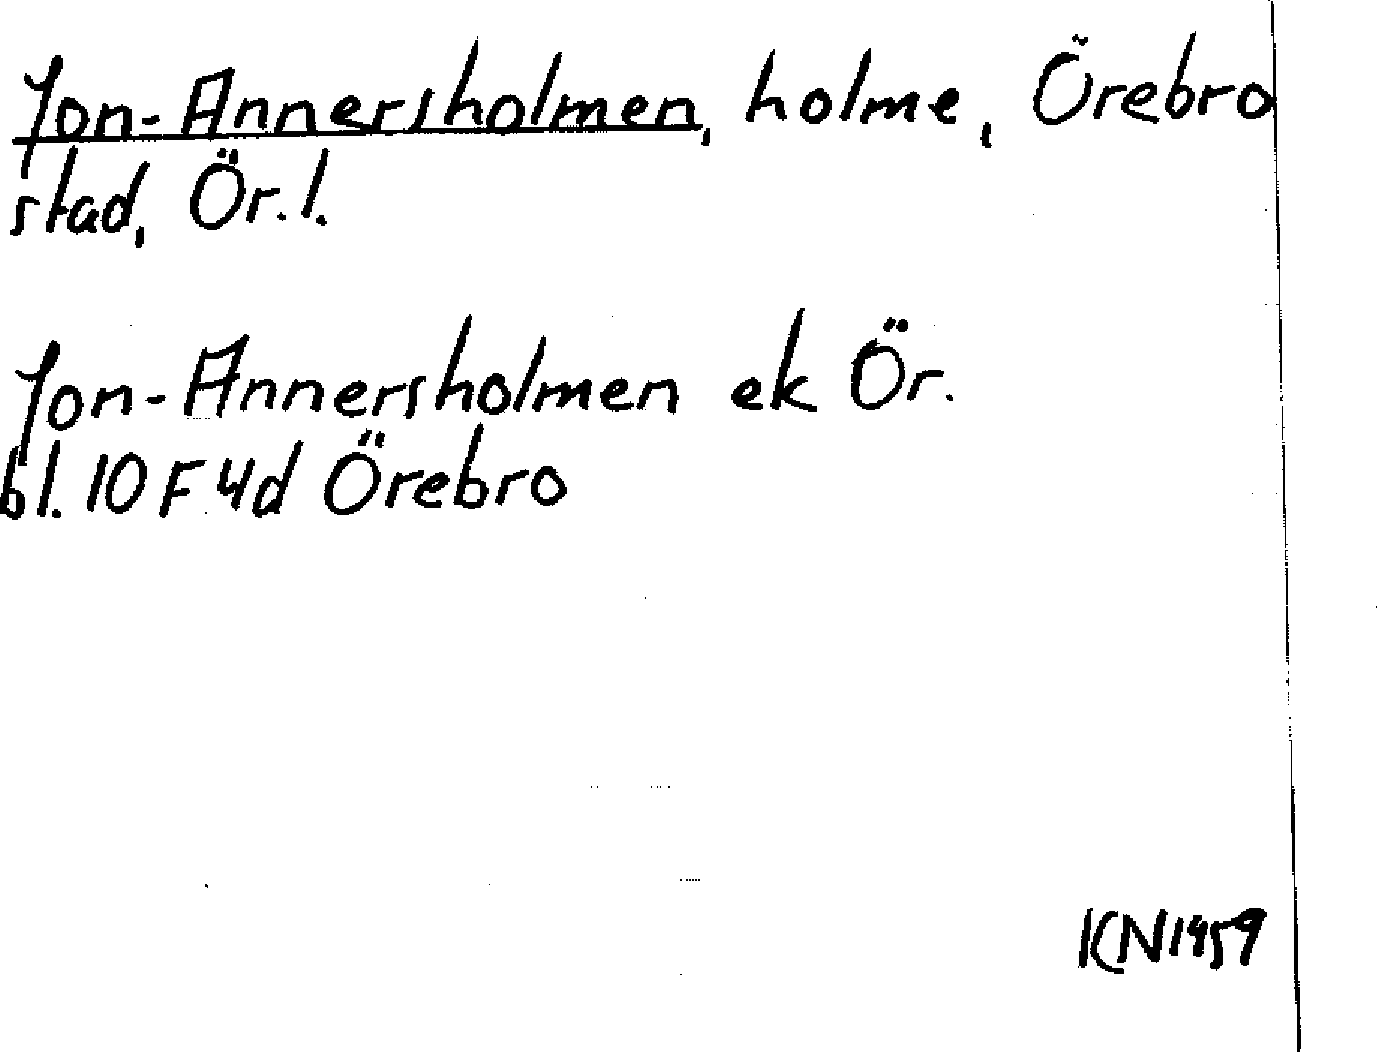 Jon-Annersholmen, holme, Örebro
stad, Ör. l.
Jon-Annersholmen ek Ör.
bl. 10 F 4d Örebro
KN 1959